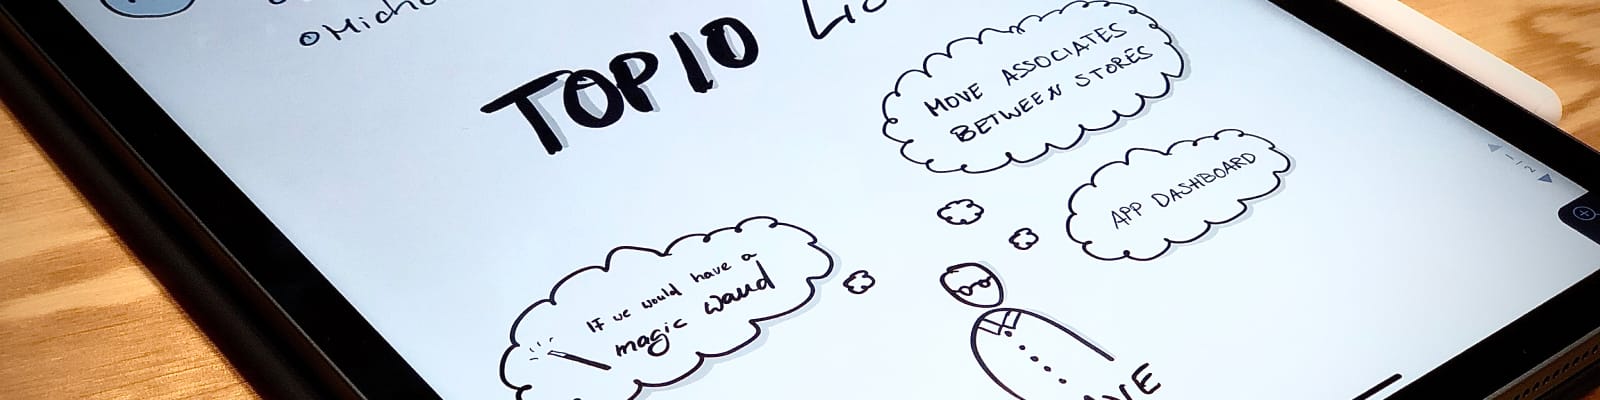 TOP 10
MOVE ASSOCIATES
BETWEEN STORES
APP DASHBOARD
If we would have a
magic wand
1/2